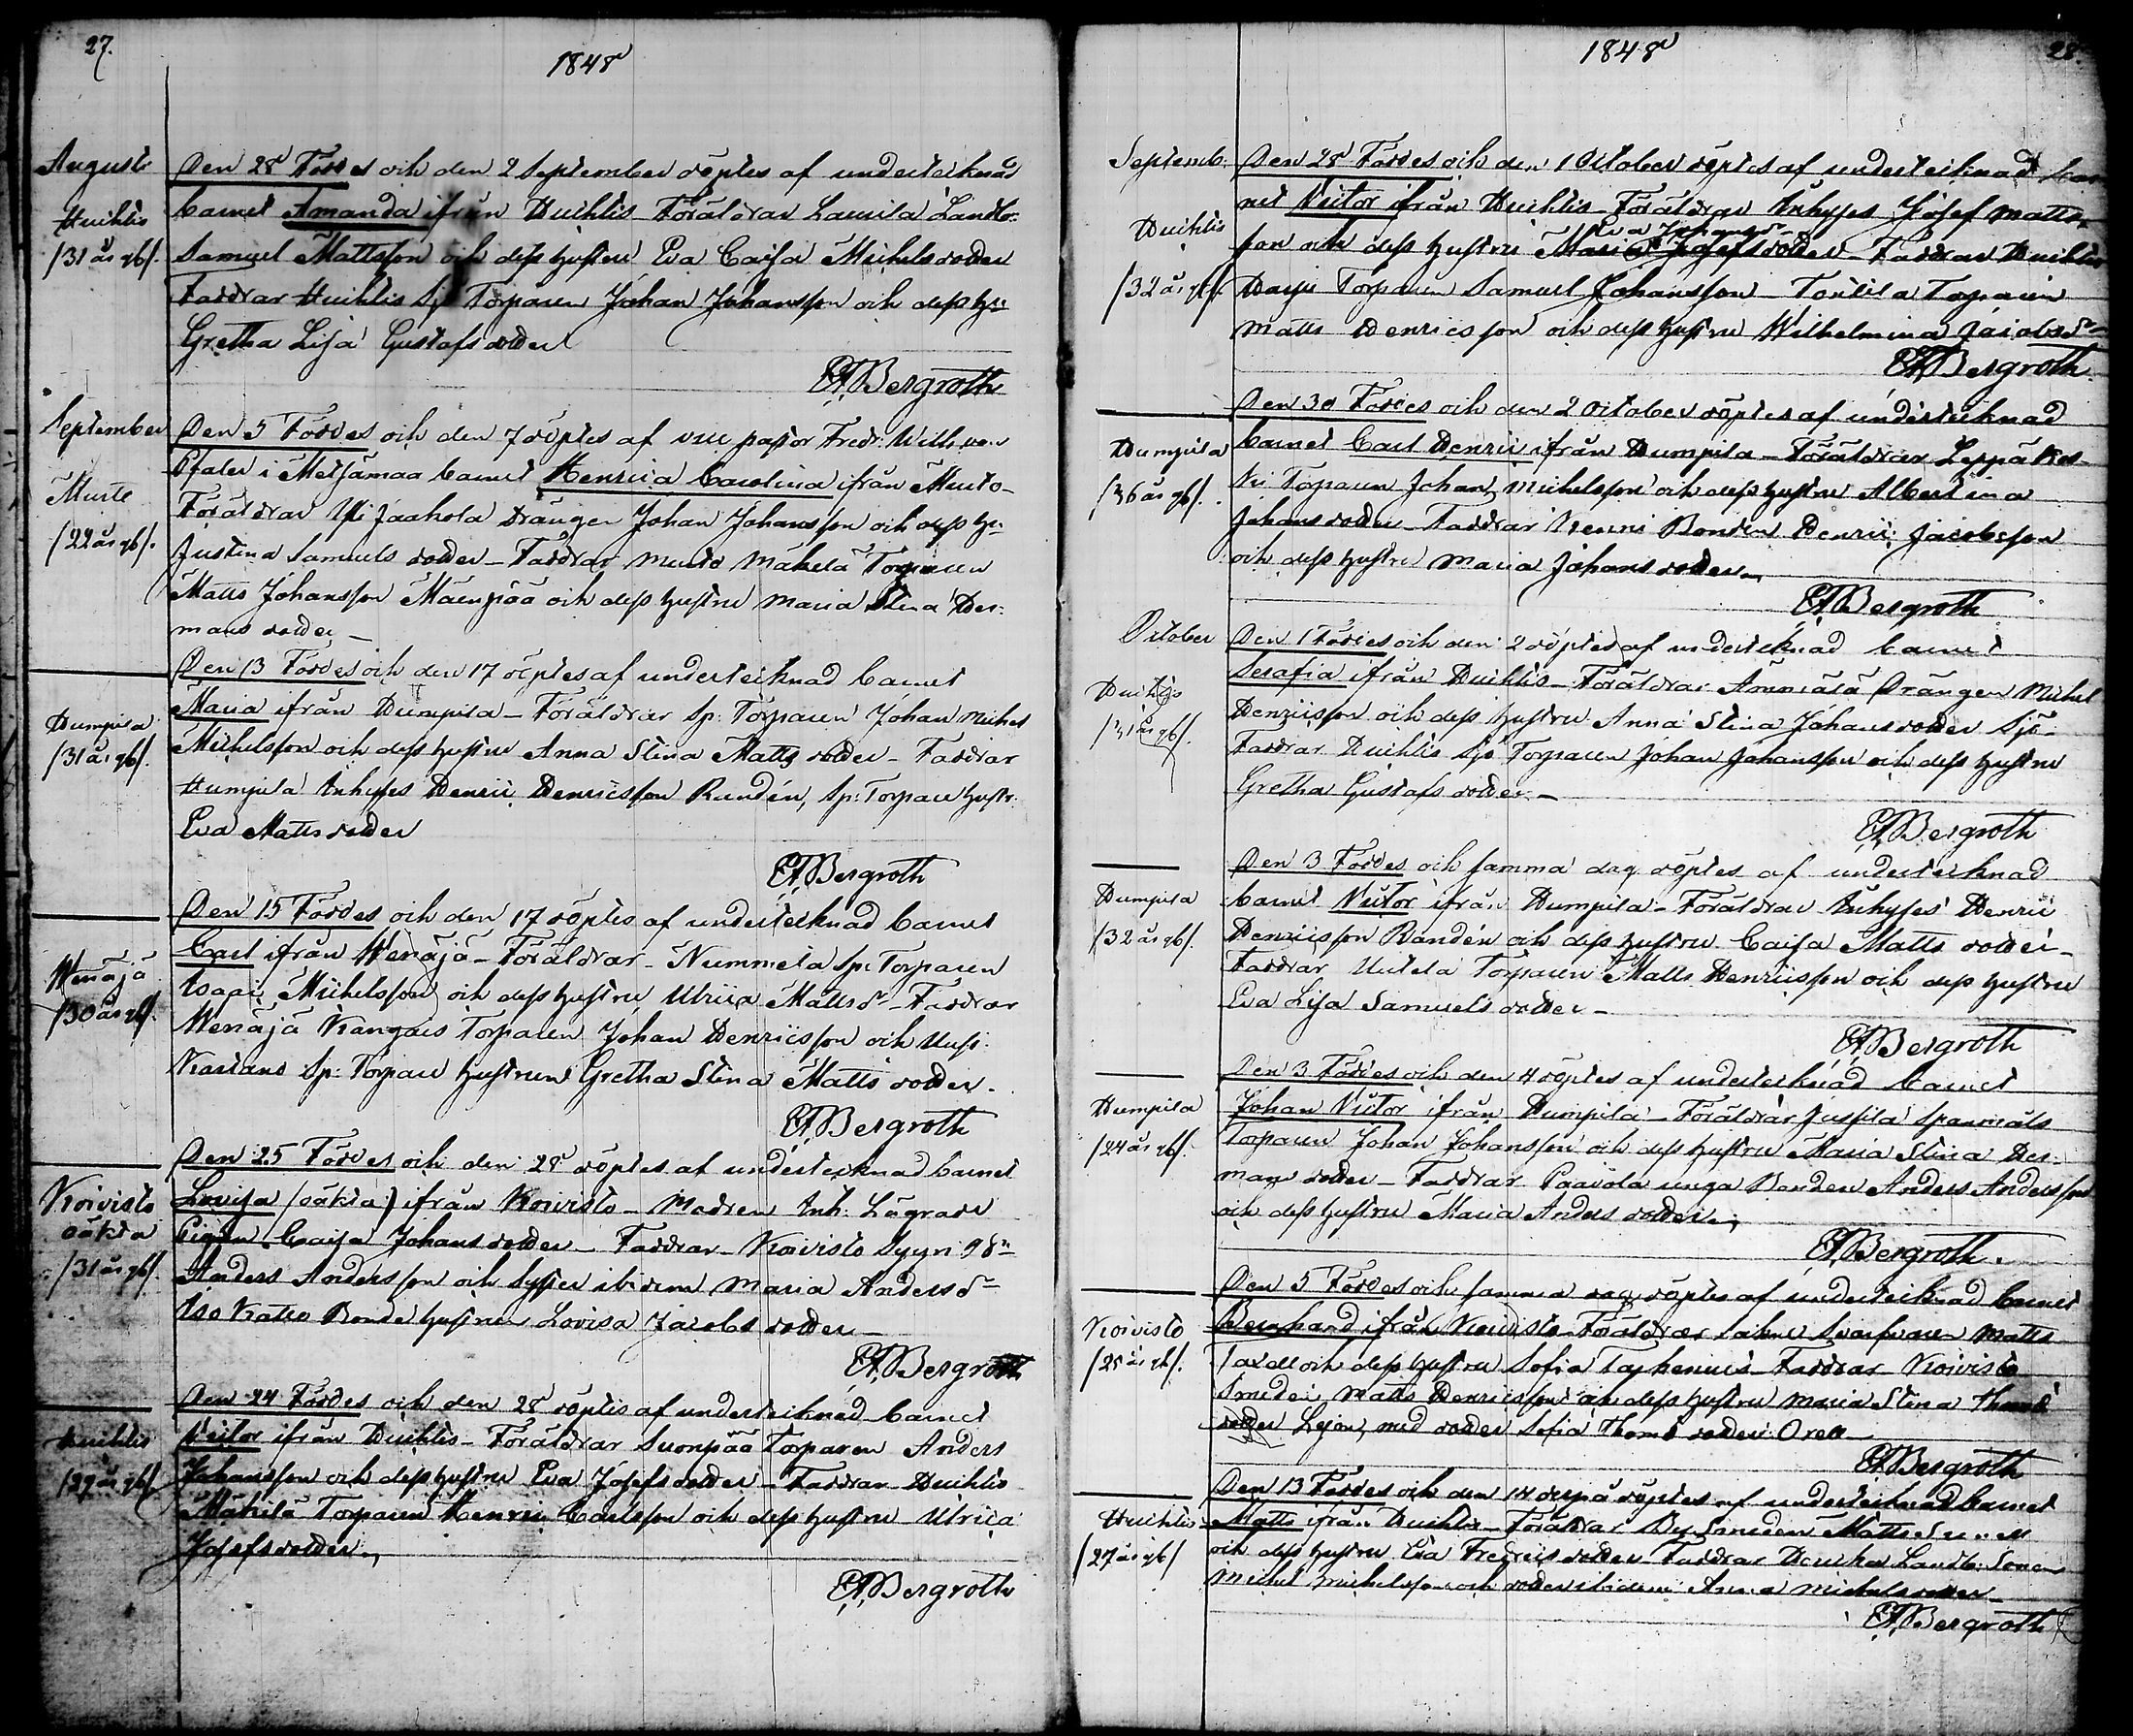 27.
1848
Augusti
Huihtis
/31 år gl/.
Den 28 Föddes och den 2 September döptes af undertecknad
barnet Amanda ifrån Huihtis Föräldrar Laurila Landb:
Samuel Mattsson och dess hustru Eva Caisa Michelsdotter
Faddrar Huihtis Sp Torparen Johan Johansson och dess hu
Gretha Lisa Gustafsdotter
EABergroth
September
Murto
/22 år gl/.
Den 5 Föddes och den 7 döptes af vice pastor Fredr: Wilh von
Pfaler i Metsämaa barnet Henrica Carolina ifrån Murto
Föräldrar Yli Jaakola Drängen Johan Johansson och dess hu
Justina Samuels dotter – Faddrar Murto Mäkelä Torparen
Matts Johansson Mäenpää och dess hustru Maria Stina Her-
mans dotter –
Humpila
/31 år gl/.
Den 13 Föddes och den 17 döptes af undertecknad barnet
Maria ifrån Humpila – Föräldrar Sp: Torparen Johan Michel
Michelsson och dess hustru Anna Stina Matts dotter – Faddrar
Humpila Inhyses Henric Henricsson Randén, Sp: Torpare hustr:
Eva Mattsdotter
EABergroth
Wenäjä
/30 år gl/.
Den 15 Föddes och den 17 döptes af undertecknad barnet
Carl ifrån Wenäjä – Föräldrar – Nummela Sp: Torparen
Isaac Michelsson och dess hustru Ulrica Matts dr – Faddrar
Wenäjä Kangais Torparen Johan Henricsson och Uusi
Kartano Sp: Torpare hustrun Gretha Stina Matts dotter.
EABergroth
Koivisto
oäkta
/31 år gl/.
Den 25 Föddes och den 28 döptes af undertecknad barnet
Lovisa (oäkta) ifrån Koivisto – Modren Inh: Lägrade
Pigan Caisa Johans dotter – Faddrar – Koivisto
Anders Andersson och Syster ibidem Maria Anders dr
Iso Katto Bonde hustrun Lovisa Jacobs dotter –
EABergroth
Huihtis
/27 år gl/.
Den 24 Föddes och den 28 döptes af undertecknad barnet
Victor ifrån Huihtis – Föräldrar Suonpää Torparen Anders
Johansson och dess hustru Eva Josefs dotter – Faddrar Huihtis
Mäkilä Torparen Henric Carlsson och dess hustru Ulrica
Josefsdotter
EABergroth
1848
28.
Septemb.
Huihtis
/32 år gl/.
Den 28 Föddes och den 1 October döptes af undertecknad bar
net Victor ifrån Huihtis – Föräldrar Inhyses Josef Matts-
Eva Johans dr
son och dess hustru Maria Josefsdotter – Faddrar Huihtis
Torparen Samuel Johansson – Tontila Torparen
Matts Henricsson och dess hustru Wilhelmina Jacobs dr
EABergroth
Humpila
/36 år gl/.
Den 30 Föddes och den 2 October döptes af undertecknad
barnet Carl Henric ifrån Humpila – Föräldrar Leppäkos-
ki Torparen Johan Michelsson och dess hustru Albertina
Johans dotter – Faddrar Kenni Bonden Henric Jacobsson
och dess hustru Maria Johans dotter
EABergroth
October
Huihtis
/31 år gl/.
Den 1 Föddes och den 2 döptes af undertecknad barnet
Serafia ifrån Huihtis – Föräldrar Ämmälä Drängen Michel
Henricsson och dess hustru Anna Stina Johans dotter
Faddrar Huihtis Torparen Johan Johansson och dess hustru
Gretha Gustafs dotter –
EABergroth
Humpila
/32 år gl/.
Den 3 Föddes och samma dag döptes af undertecknad
barnet Victor ifrån Humpila – Föräldrar Inhyses Henric
Henricsson Randén och dess hustru Caisa Matts dotter –
Faddrar Torparen Matts Henricsson och dess hustru
Eva Lisa Samuels dotter –
EABergroth
Humpila
/24 år gl/.
Den 3 Föddes och den 4 döptes af undertecknad barnet
Johan Victor ifrån Humpila – Föräldrar Jussila Spanmåls
Torparen Johan Johansson och dess hustru Maria Stina Her-
mans dotter – Faddrar Paavola unga Bonden Anders Andersson
och dess hustru Maria Anders dotter
EABergroth.
Koivisto
/25 år gl/.
Den 5 Föddes och samma dag döptes af undertecknad barnet
Bernhard ifrån Koivisto Föräldrar Matts
och dess hustru Sofia – Faddrar Koivisto
Smeden Matts Henricsson och dess hustru Maria Stina Thomas
dotter dotter Sofia Thomas dotter
EABergroth
Huihtis
/27 år gl/
Den 13 Föddes och den 14 döptes af undertecknad barnet
Matts ifrån Huihtis – Föräldrar By Smeden Matts
och dess hustru Eva Fredrics dotter Faddrar Landb: Sonen
Michel Michelsson och dotter ibidem Anna Michelsdotter
EABergroth